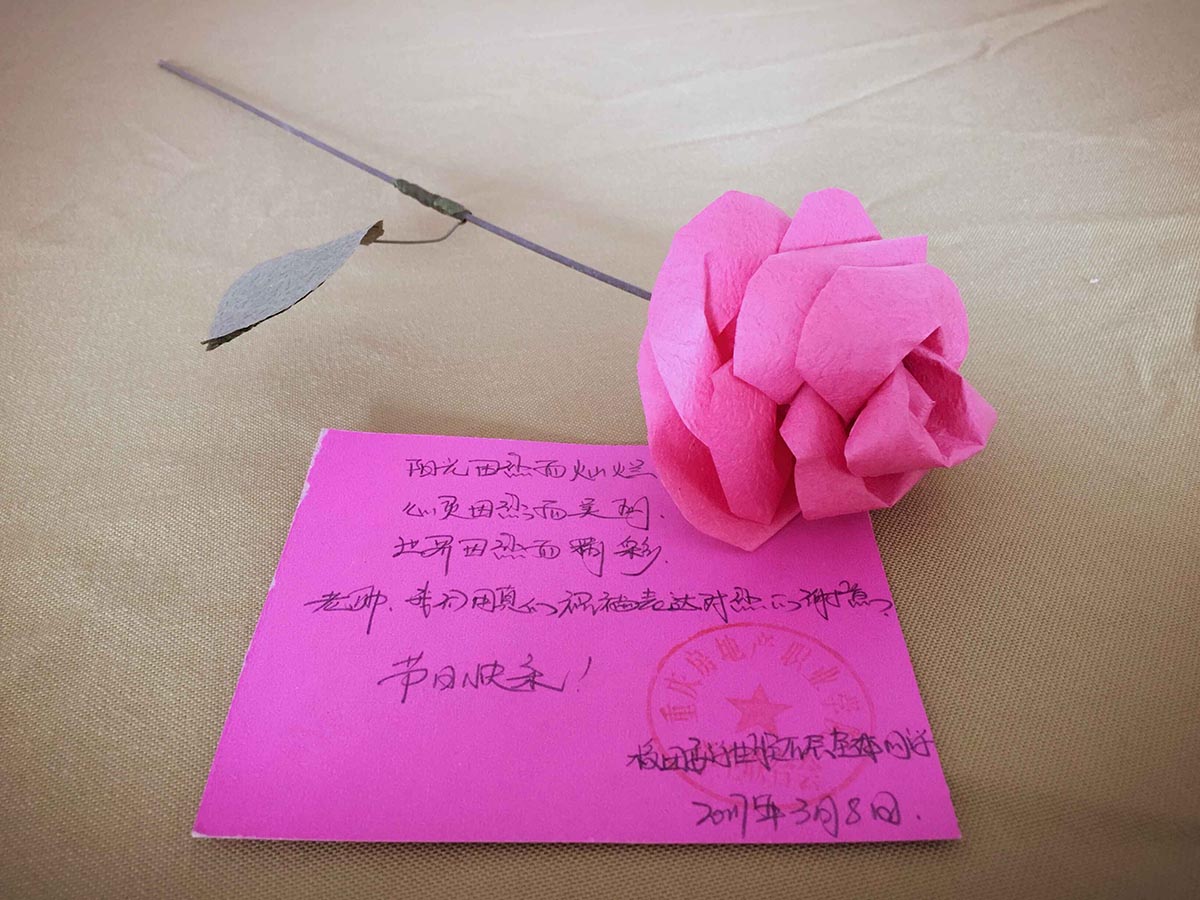 阳光因您而灿烂
心灵因您而美丽.
世界因您而精彩.
老师.我们用真心祝福表达对您的谢意.
节日快乐!
重庆房地产职业学
校团委学生会 全体同学
2017年3月8日.